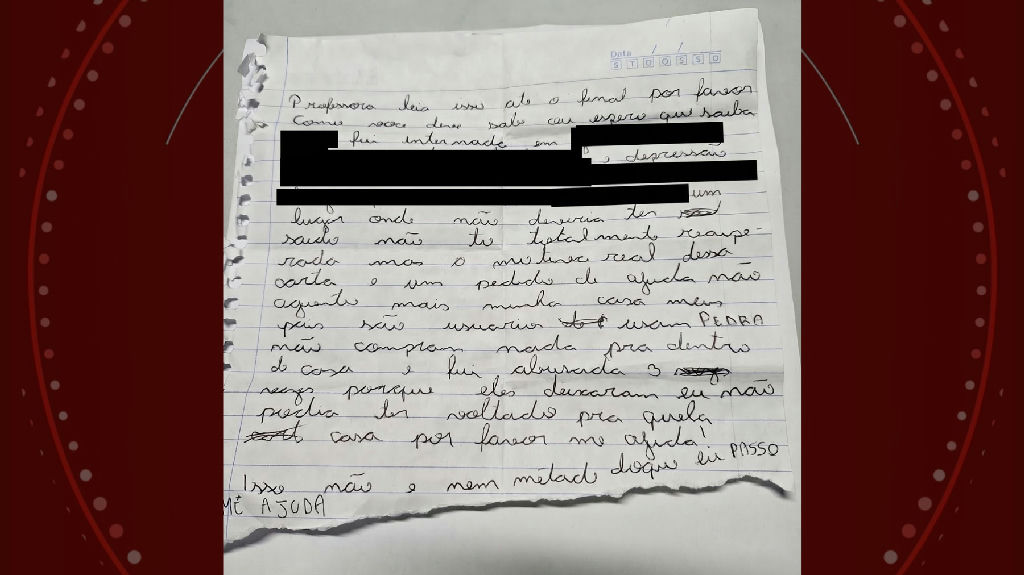 Data / /
S T Q Q S S D
Professora leia isso até o final por favor
Como voce deve sabe ou espero que saiba
fui internada em
e depressão
um
lugar onde não deveria ter
saido não to totalmente recupe-
rada mas o motivo real dessa
carta e um pedido de ajuda não
aguento mais minha casa meus
pais são usuarios usam PEDRA
não compram nada pra dentro
de casa e fui abusada 3
vezes porque eles deixaram eu não
podia ter voltado pra quela
casa por favor me ajuda!
Isso não e nem métad doque eu PASSO
ME AJUDA